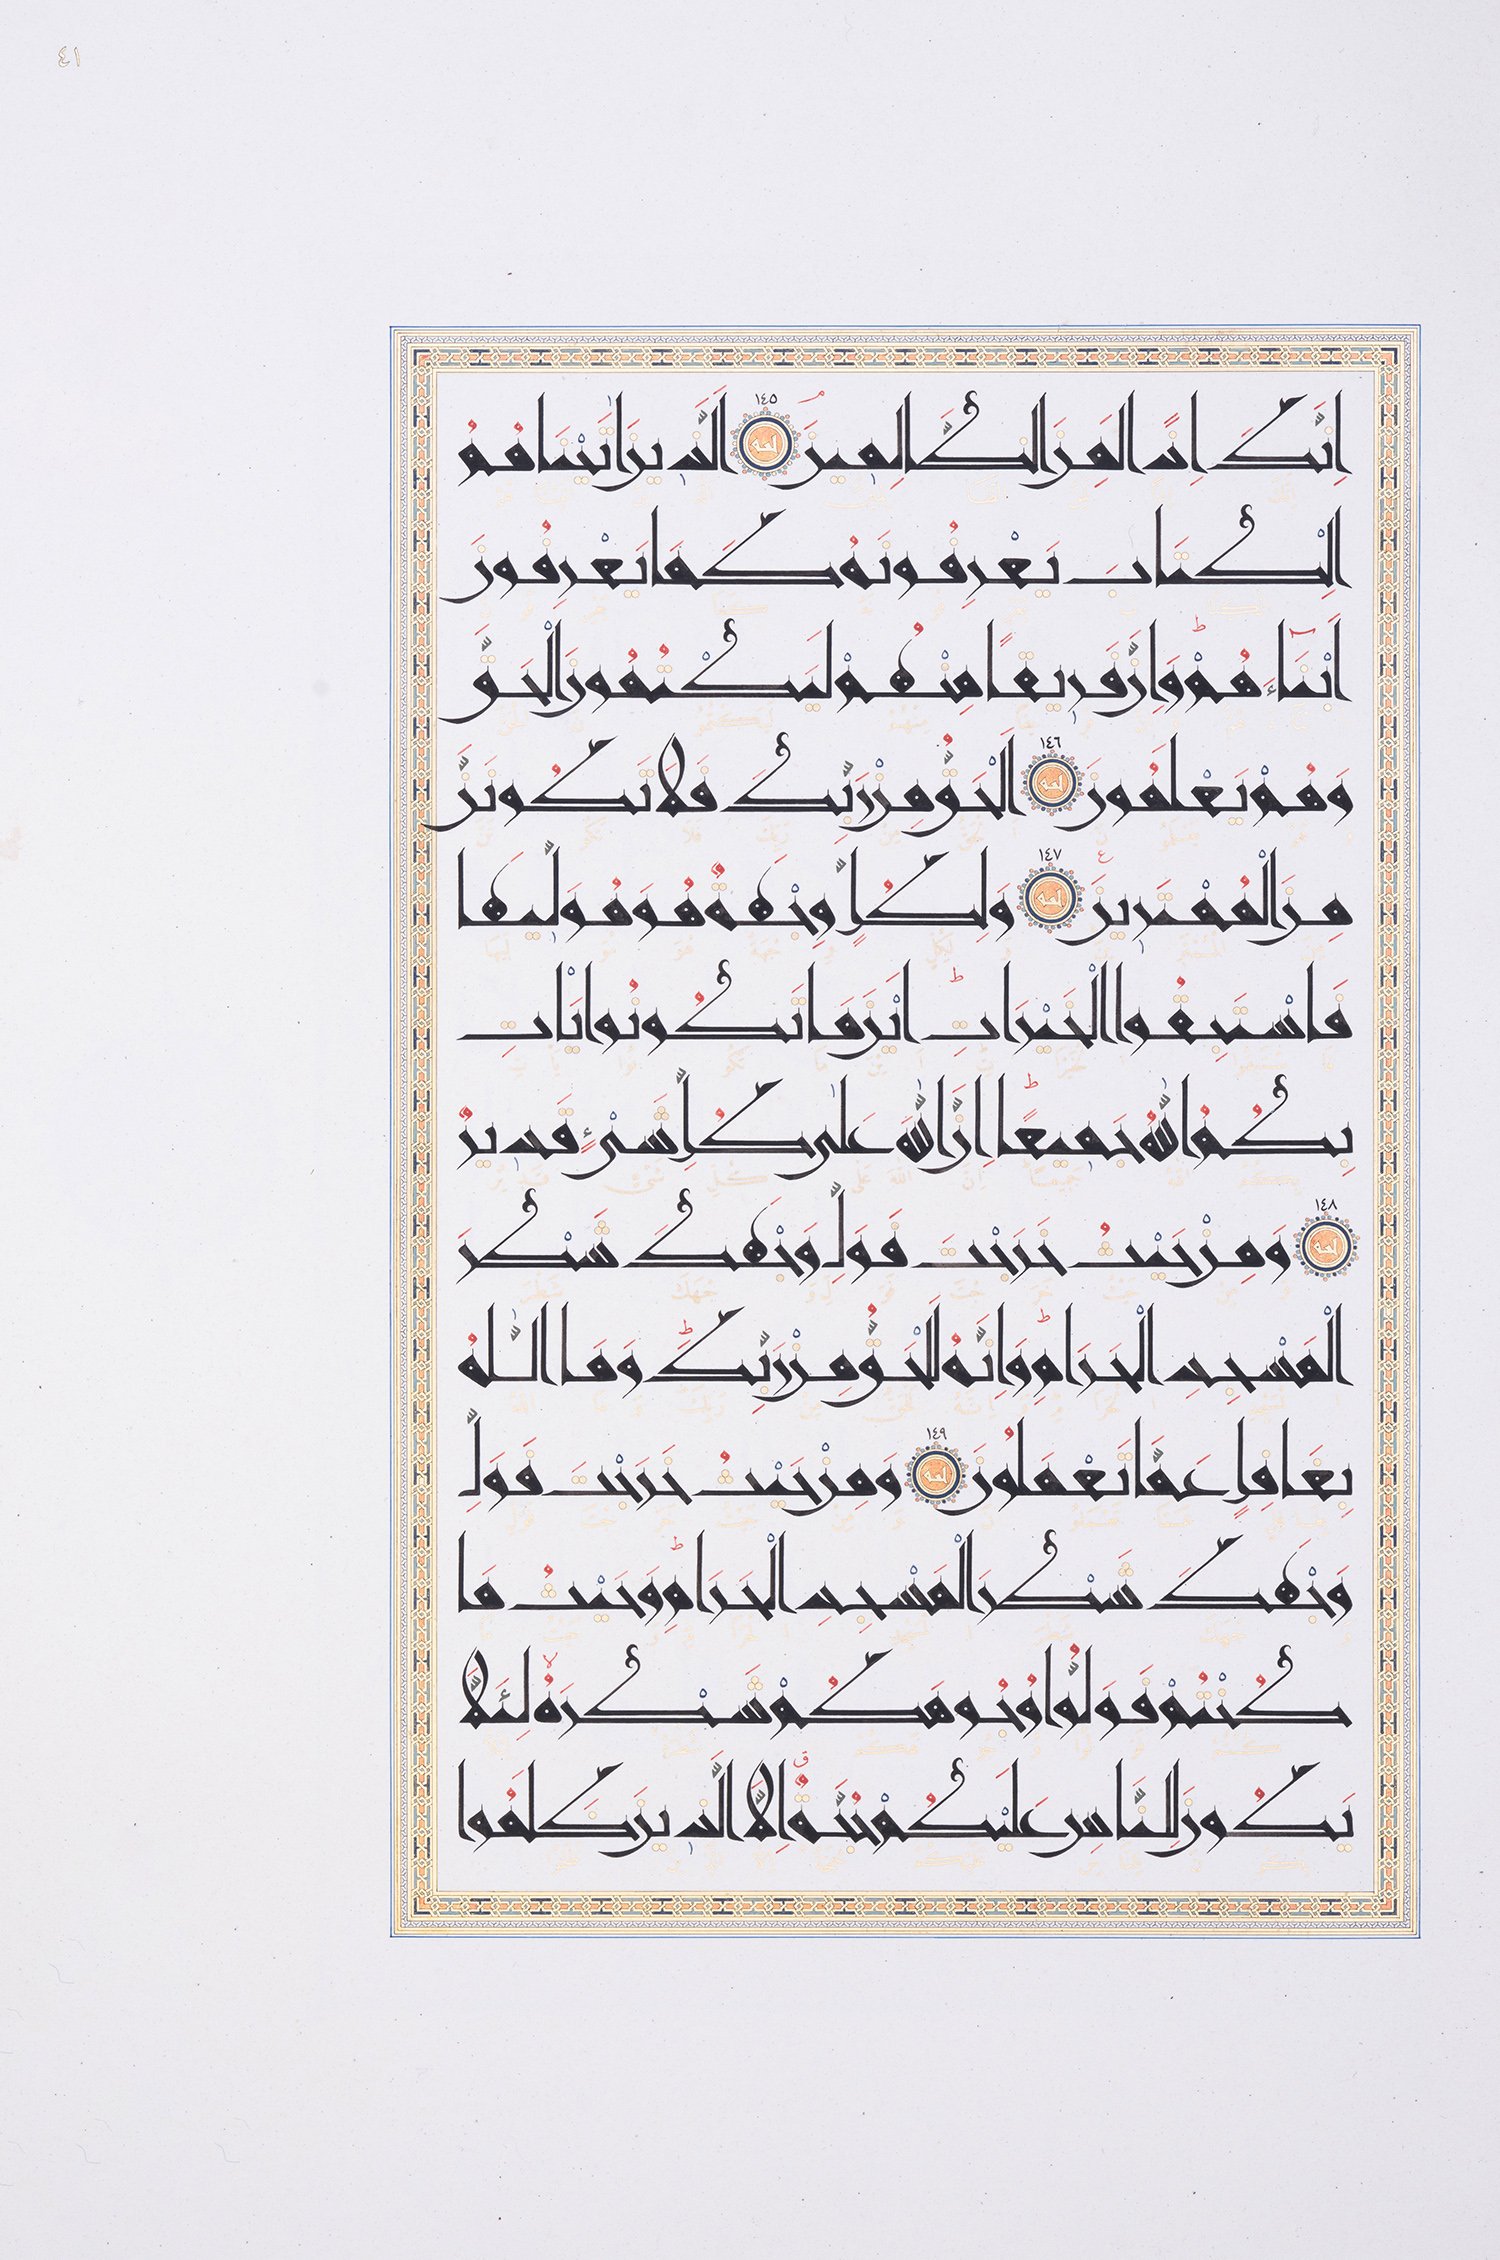 ٤١
إِنَّكَ إِذًا لَمِنَ الظَّالِمِينَ ١٤٥ اَلَّذِينَ اٰتَيْنَاهُمُ
الْكِتَابَ يَعْرِفُونَهُ كَمَا يَعْرِفُونَ
أَبْنَاءَهُمْ وَإِنَّ فَرِيقًا مِنْهُمْ لَيَكْتُمُونَ الْحَقَّ
وَهُمْ يَعْلَمُونَ ١٤٦ اَلْحَقُّ مِنْ رَبِّكَ فَلَا تَكُونَنَّ
مِنَ الْمُمْتَرِينَ ١٤٧ وَلِكُلٍّ وِجْهَةٌ هُوَ مُوَلِّيهَا
فَاسْتَبِقُوا الْخَيْرَاتِ أَيْنَ مَا تَكُونُوا يَأْتِ
بِكُمُ اللّٰهُ جَمِيعًا إِنَّ اللّٰهَ عَلٰى كُلِّ شَيْءٍ قَدِيرٌ
١٤٨ وَمِنْ حَيْثُ خَرَجْتَ فَوَلِّ وَجْهَكَ شَطْرَ
الْمَسْجِدِ الْحَرَامِ وَإِنَّهُ لَلْحَقُّ مِنْ رَبِّكَ وَمَا اللّٰهُ
بِغَافِلٍ عَمَّا تَعْمَلُونَ ١٤٩ وَمِنْ حَيْثُ خَرَجْتَ فَوَلِّ
وَجْهَكَ شَطْرَ الْمَسْجِدِ الْحَرَامِ وَحَيْثُ مَا
كُنْتُمْ فَوَلُّوا وُجُوهَكُمْ شَطْرَهُ لِئَلَّا
يَكُونَ لِلنَّاسِ عَلَيْكُمْ حُجَّةٌ إِلَّا الَّذِينَ ظَلَمُوا